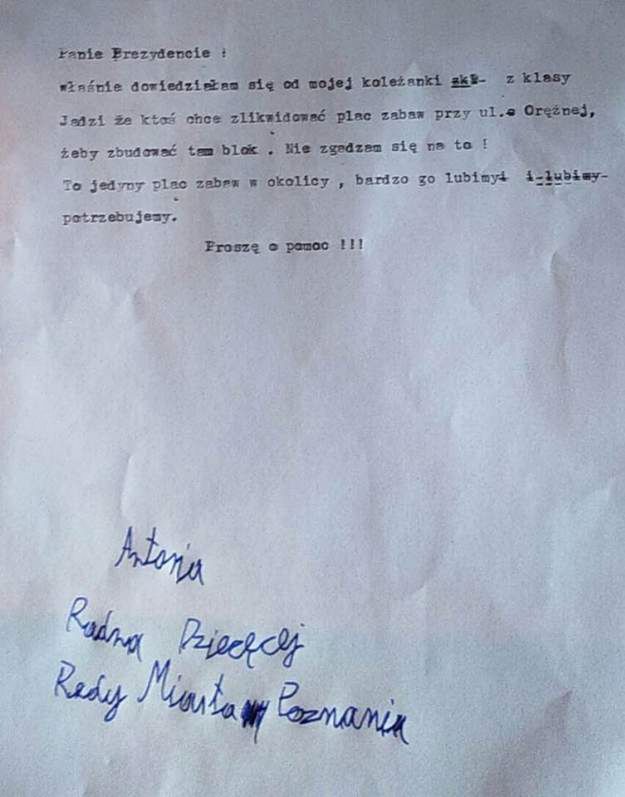 Panie Prezydencie !
właśnie dowiedziałam się od mojej koleżanki z klasy
Jadzi że ktoś chce zlikwidować plac zabaw przy ul. Orężnej,
żeby zbudować tam blok . Nie zgadzam się na to !
To jedyny plac zabaw w okolicy , bardzo go lubimy i lubimy
potrzebujemy.
Proszę o pomoc !!!
Antonia
Radna Dziecięcej
Rady Miasta Poznania